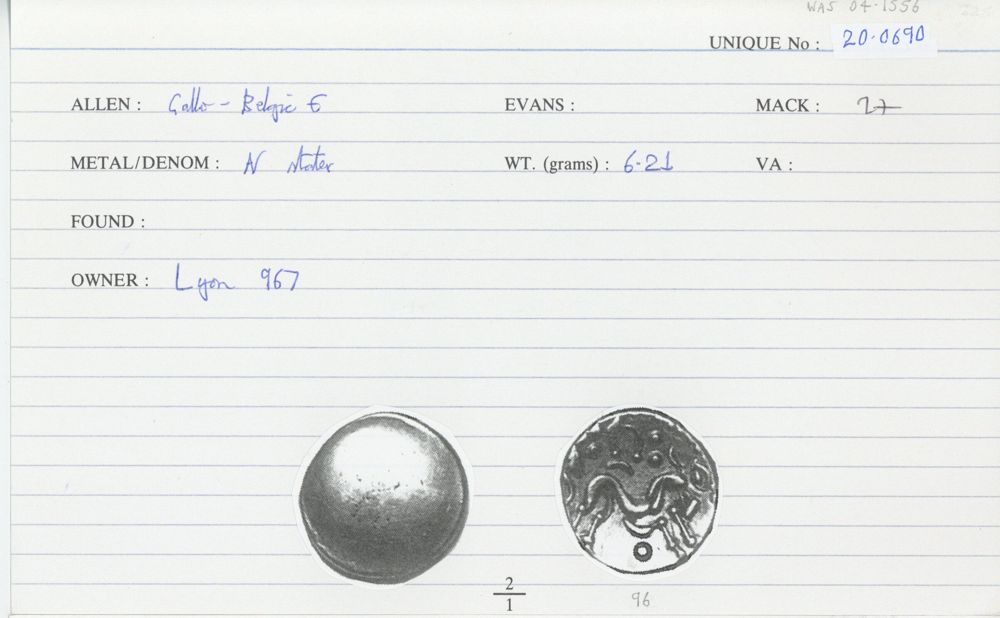 WAS 04·1556
UNIQUE No : 20·0690
ALLEN : Gallo - Belgic E EVANS : MACK : 27
METAL/DENOM : N stater WT. (grams) : 6·21 VA :
FOUND :
OWNER : Lyon 967
2
1
96